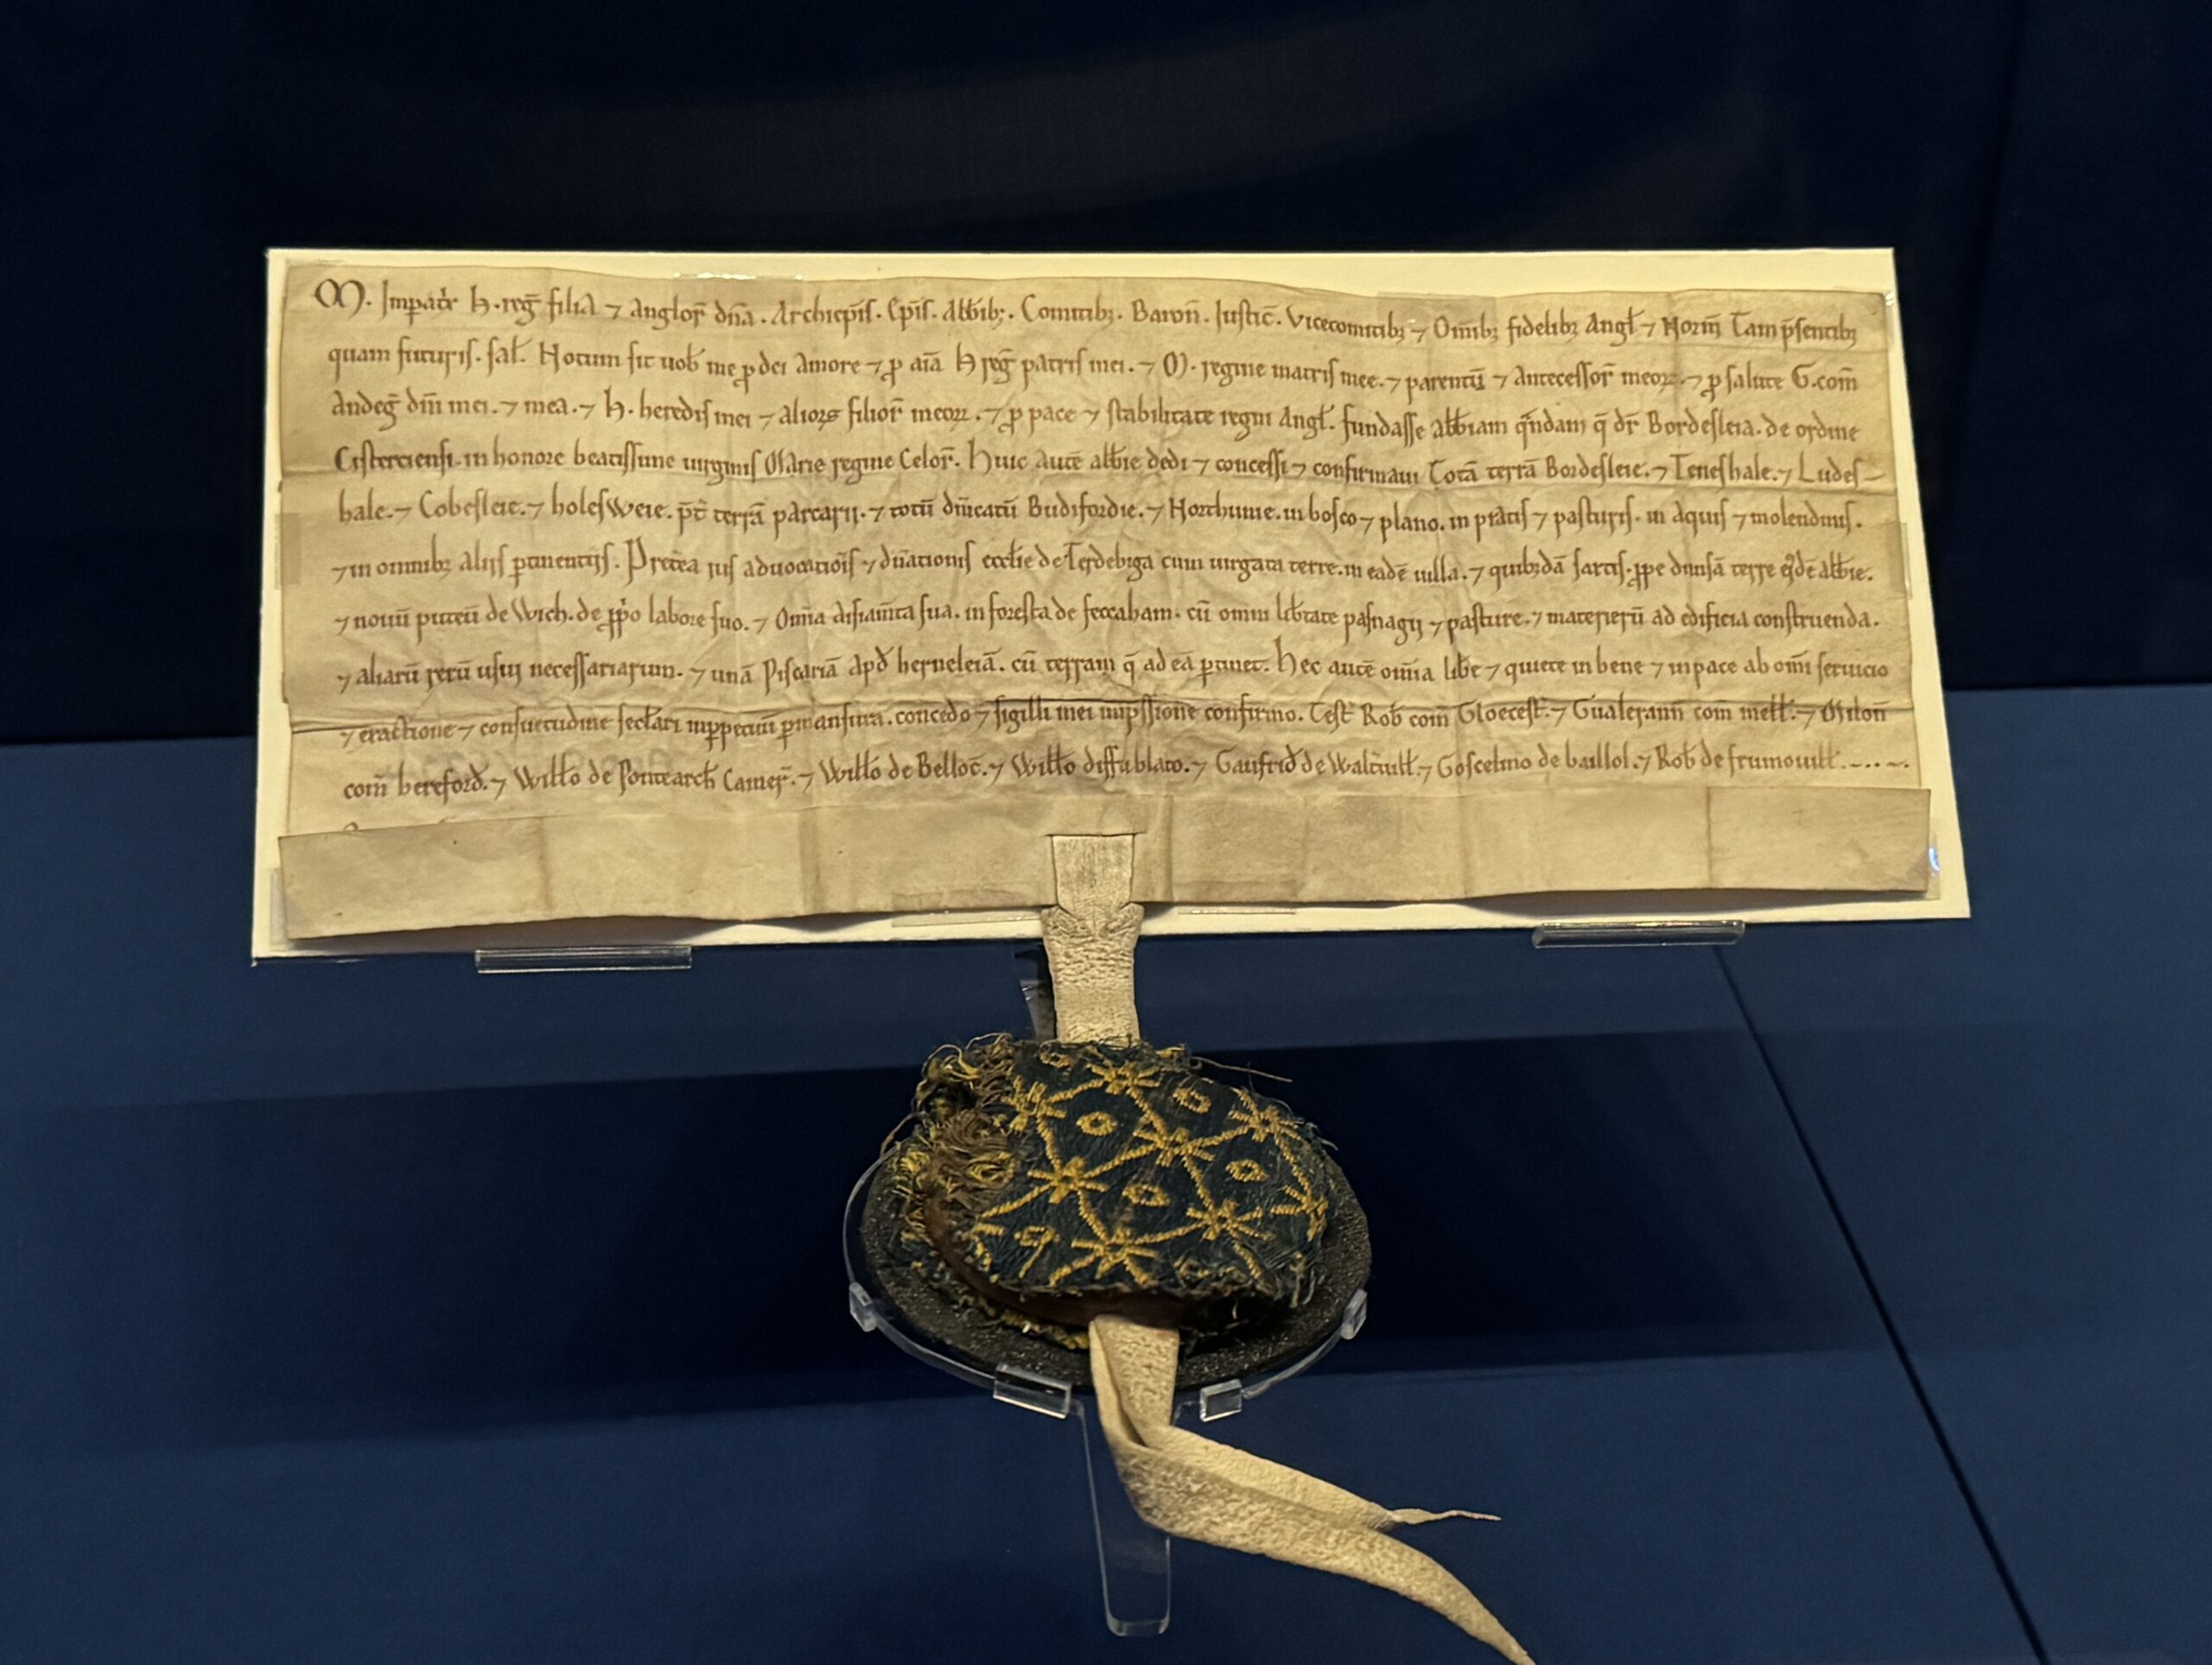 M. Imperatͬ H. regͥ filia ⁊ Anglor̄ dn̄a. Archiep̄is. Ep̄is. Abb̄ibꝫ. Comitibꝫ. Baron̄. Justic̄. Vicecomitibꝫ ⁊ Om̄ibꝫ fidelibꝫ Angł ⁊ Norm̄ Tam p̄sentibꝫ
quam futuris. sał. Notum sit uob̄ me ꝓ dei Amore ⁊ ꝓ aīa H reḡ patris mei. ⁊ M. regine matris mee. ⁊ parentū ⁊ antecessor̄ meoꝝ. ⁊ ꝓ salute G. com̄
Andeḡ dn̄i mei. ⁊ mea. ⁊ H. heredis mei ⁊ alioꝝ filior̄ meoꝝ. ⁊ ꝓ pace ⁊ stabilitate regni Angł. fundasse abb̄iam q̄ndam q̄ dr̄ Bordesleia. de ordine
Cisterciensi. in honore beatissime uirginis Marie regine Celor̄. Huic autē abb̄ie dedi ⁊ concessi ⁊ confirmaui Totā terrā Bordesleie. ⁊ Teneshale. ⁊ Ludes-
hale. ⁊ Cobesleie. ⁊ holesweie. p̄t̄ terrā parcarij. ⁊ totū dn̄icatū Budifordie. ⁊ Northune. in bosco ⁊ plano. in pratis ⁊ pasturis. in aquis ⁊ molendinis.
⁊ in omnibꝫ alijs ꝑtinentijs. Pretēa ius aduocatiōis ⁊ dn̄ationis eccłie de Terdebiga cum uirgata terre. in eadē uilla. ⁊ quibꝫdā sartis. ꝓpe diuisā terre eͥdē abb̄ie.
⁊ nouū puteū de Wich. de ꝓpͥo labore suo. ⁊ Om̄ia aisiam̄ta sua. in foresta de feccaham. cū omni lib̄tate pasnagij ⁊ pasture. ⁊ materierū ad edificia construenda.
⁊ aliarū rerū usui necessariarum. ⁊ unā Piscariā apd̄ herneleiā. cū terram q̄ ad eā ꝑtinet. Hec autē om̄ia lib̄e ⁊ quiete in bene ⁊ in pace ab om̄i seruicio
⁊ exactione ⁊ consuetudine secłari inꝑpetuū ꝑmansura. concedo ⁊ sigilli mei inp̄ssione confirmo. Test̄ Rob̄ com̄ Gloecest̄. ⁊ Gualerann̄ com̄ mełł. ⁊ Milon̄
com̄ hereford̄. ⁊ Wiłło de Pontearch̄ Camer̄. ⁊ Wiłło de Belloc̄. ⁊ Wiłło diffublato. ⁊ Gaufrid̄ de Walt̄uiłł. ⁊ Goscelino de baillol. ⁊ Rob̄ de frumouiłł.